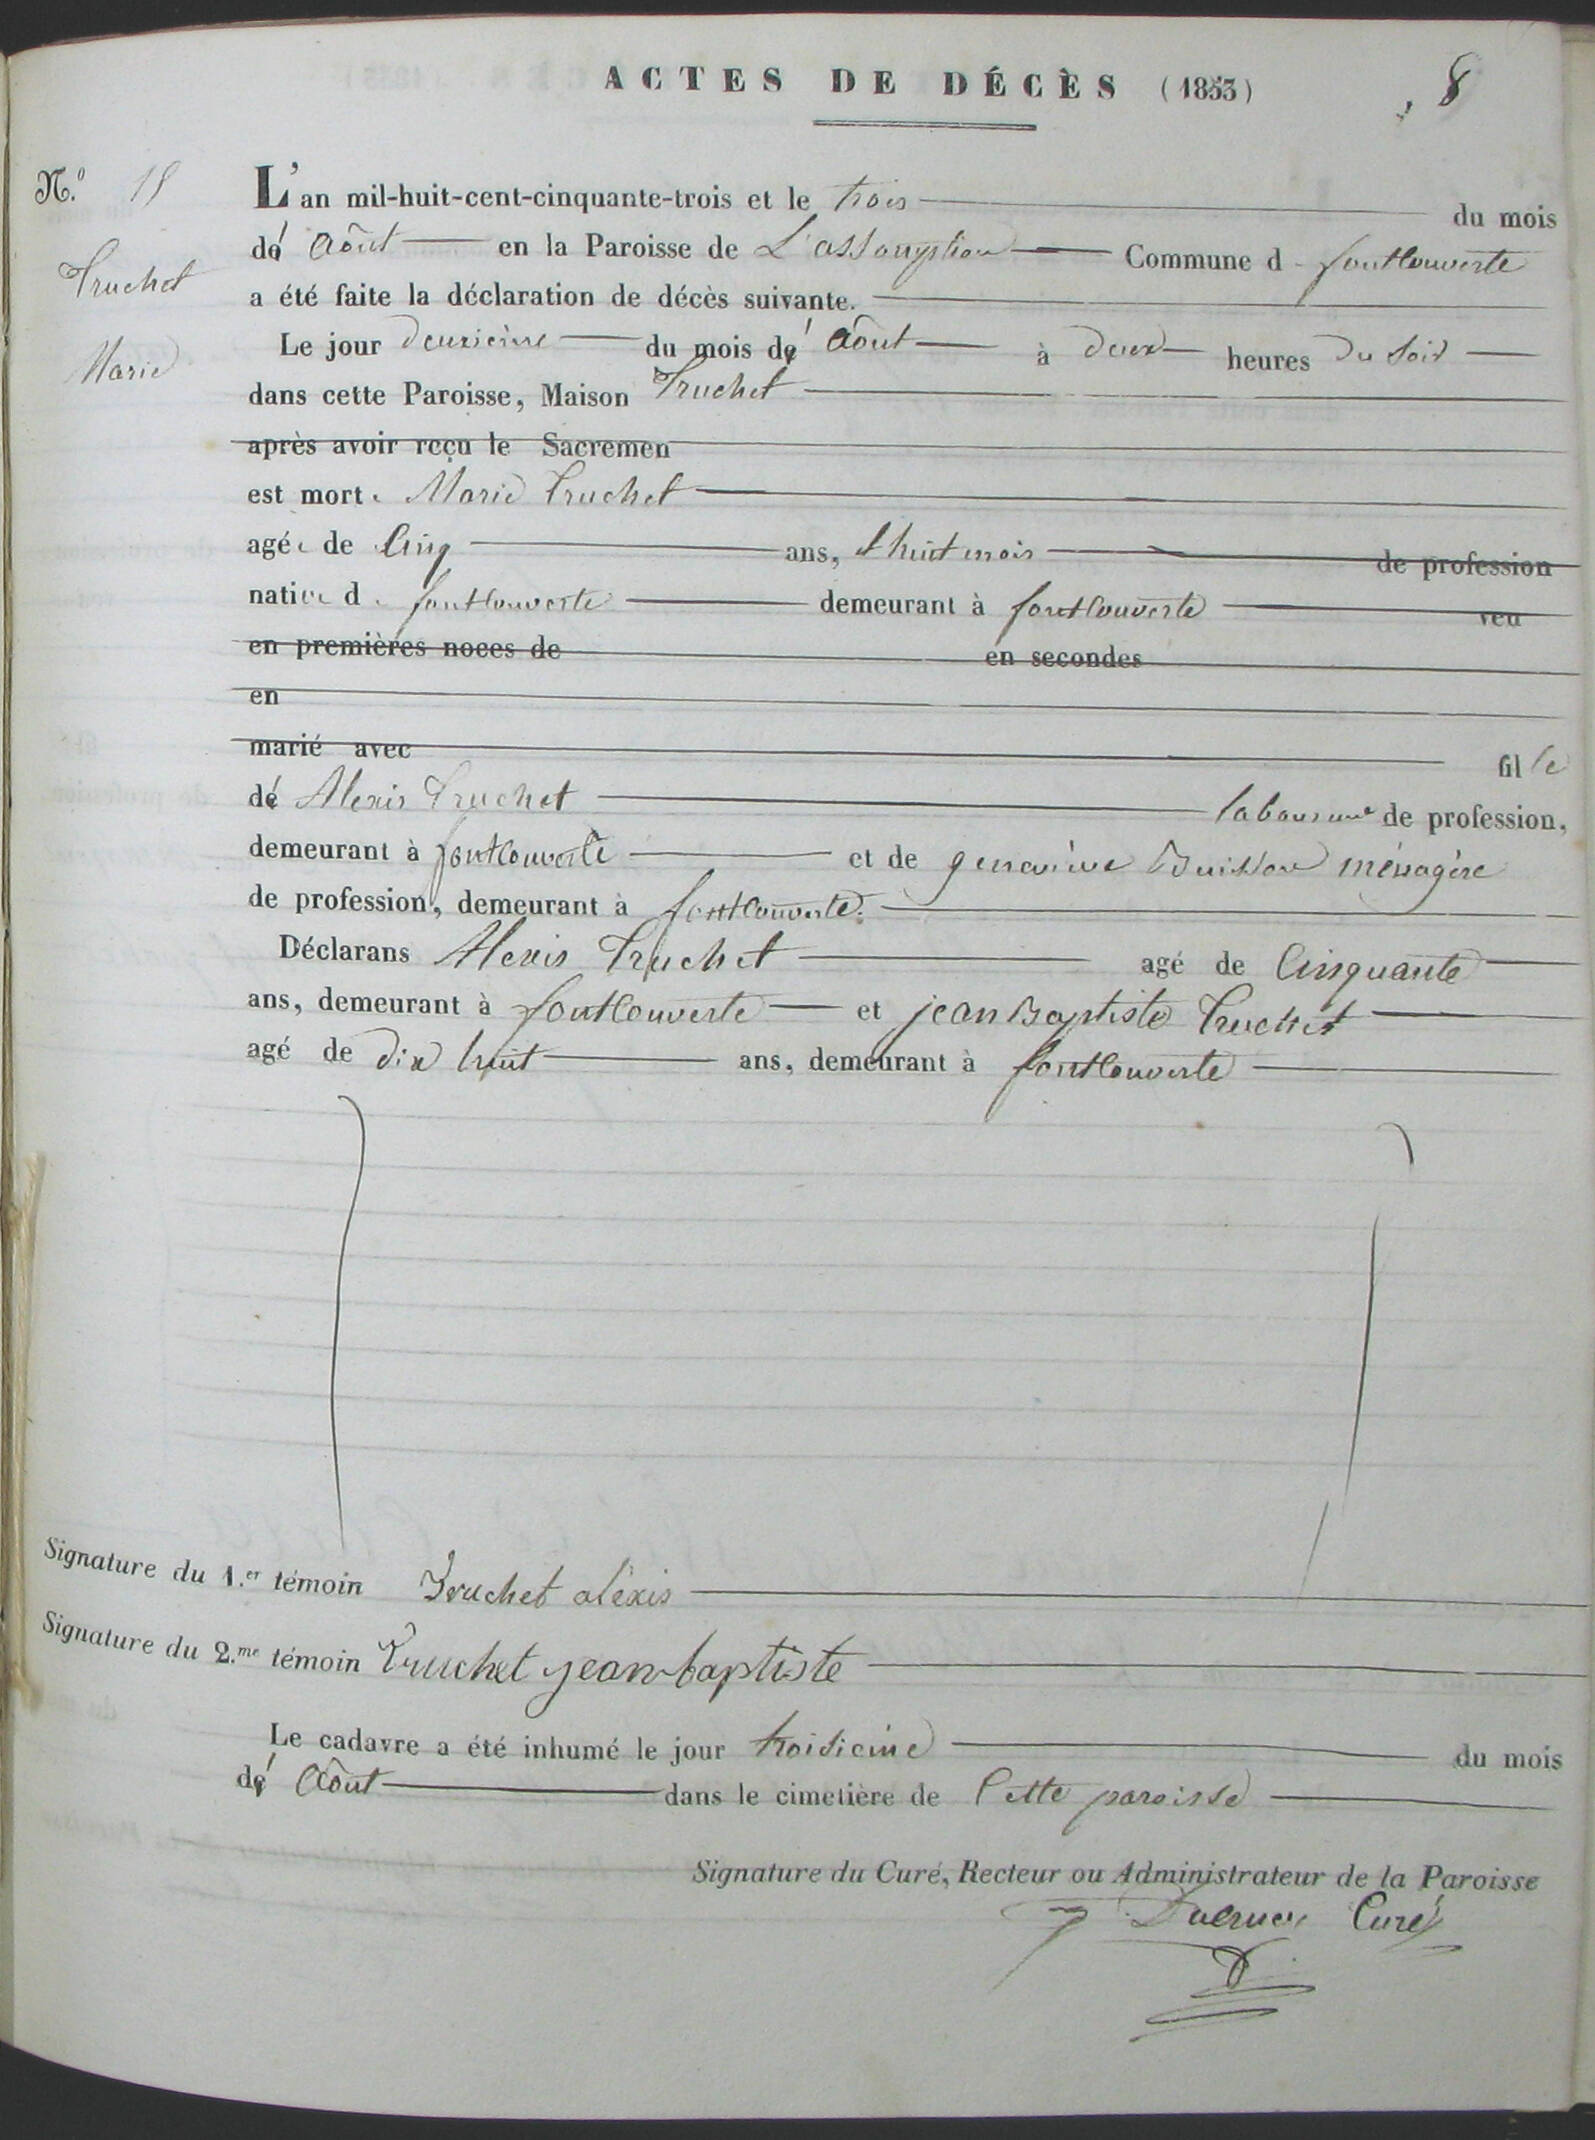 ACTES DE DÉCÈS (1853) 8
N.º
Truchet
Marie
L'an mil-huit-cent-cinquante-trois et le trois du mois
d' Août en la Paroisse de L'assomption Commune d fontcouverte
a été faite la déclaration de décès suivante.
Le jour deuxième du mois d' Août à deux heures du soir
dans cette Paroisse, Maison Truchet
après avoir reçu le Sacremen
est morte Marie Truchet
agée de Cinq ans, & huit mois de profession
native d fontcouverte demeurant à fontcouverte veu
en premières noces de en secondes
en
marié avec fille
d' Alexis Truchet laboureur de profession,
demeurant à fontcouverte et de geneviève Buisson ménagère
de profession, demeurant à fontcouverte.
Déclarans Alexis Truchet agé de Cinquante
ans, demeurant à fontcouverte et jean Baptiste Truchet
agé de dix huit ans, demeurant à fontcouverte
Signature du 1.er témoin Truchet alexis
Signature du 2.me témoin Truchet jean-baptiste
Le cadavre a été inhumé le jour troisième du mois
d' Août dans le cimetière de Cette paroisse
Signature du Curé, Recteur ou Administrateur de la Paroisse
Curé